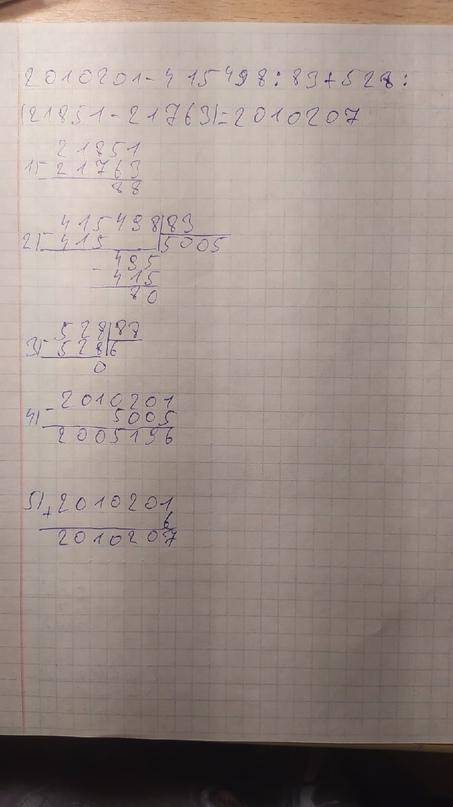 2010201-415498:83+528:
(21851-21763)=2010207
21851
1)- 21763
88
415498|83
2)- 415 5005
- 495
415
80
528|88
3)- 528 6
0
- 2010201
4) 5005
2005196
5)+ 2010201
6
2010207